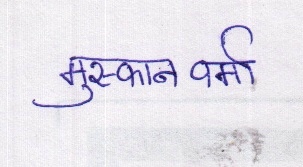 मुस्कान वर्मा